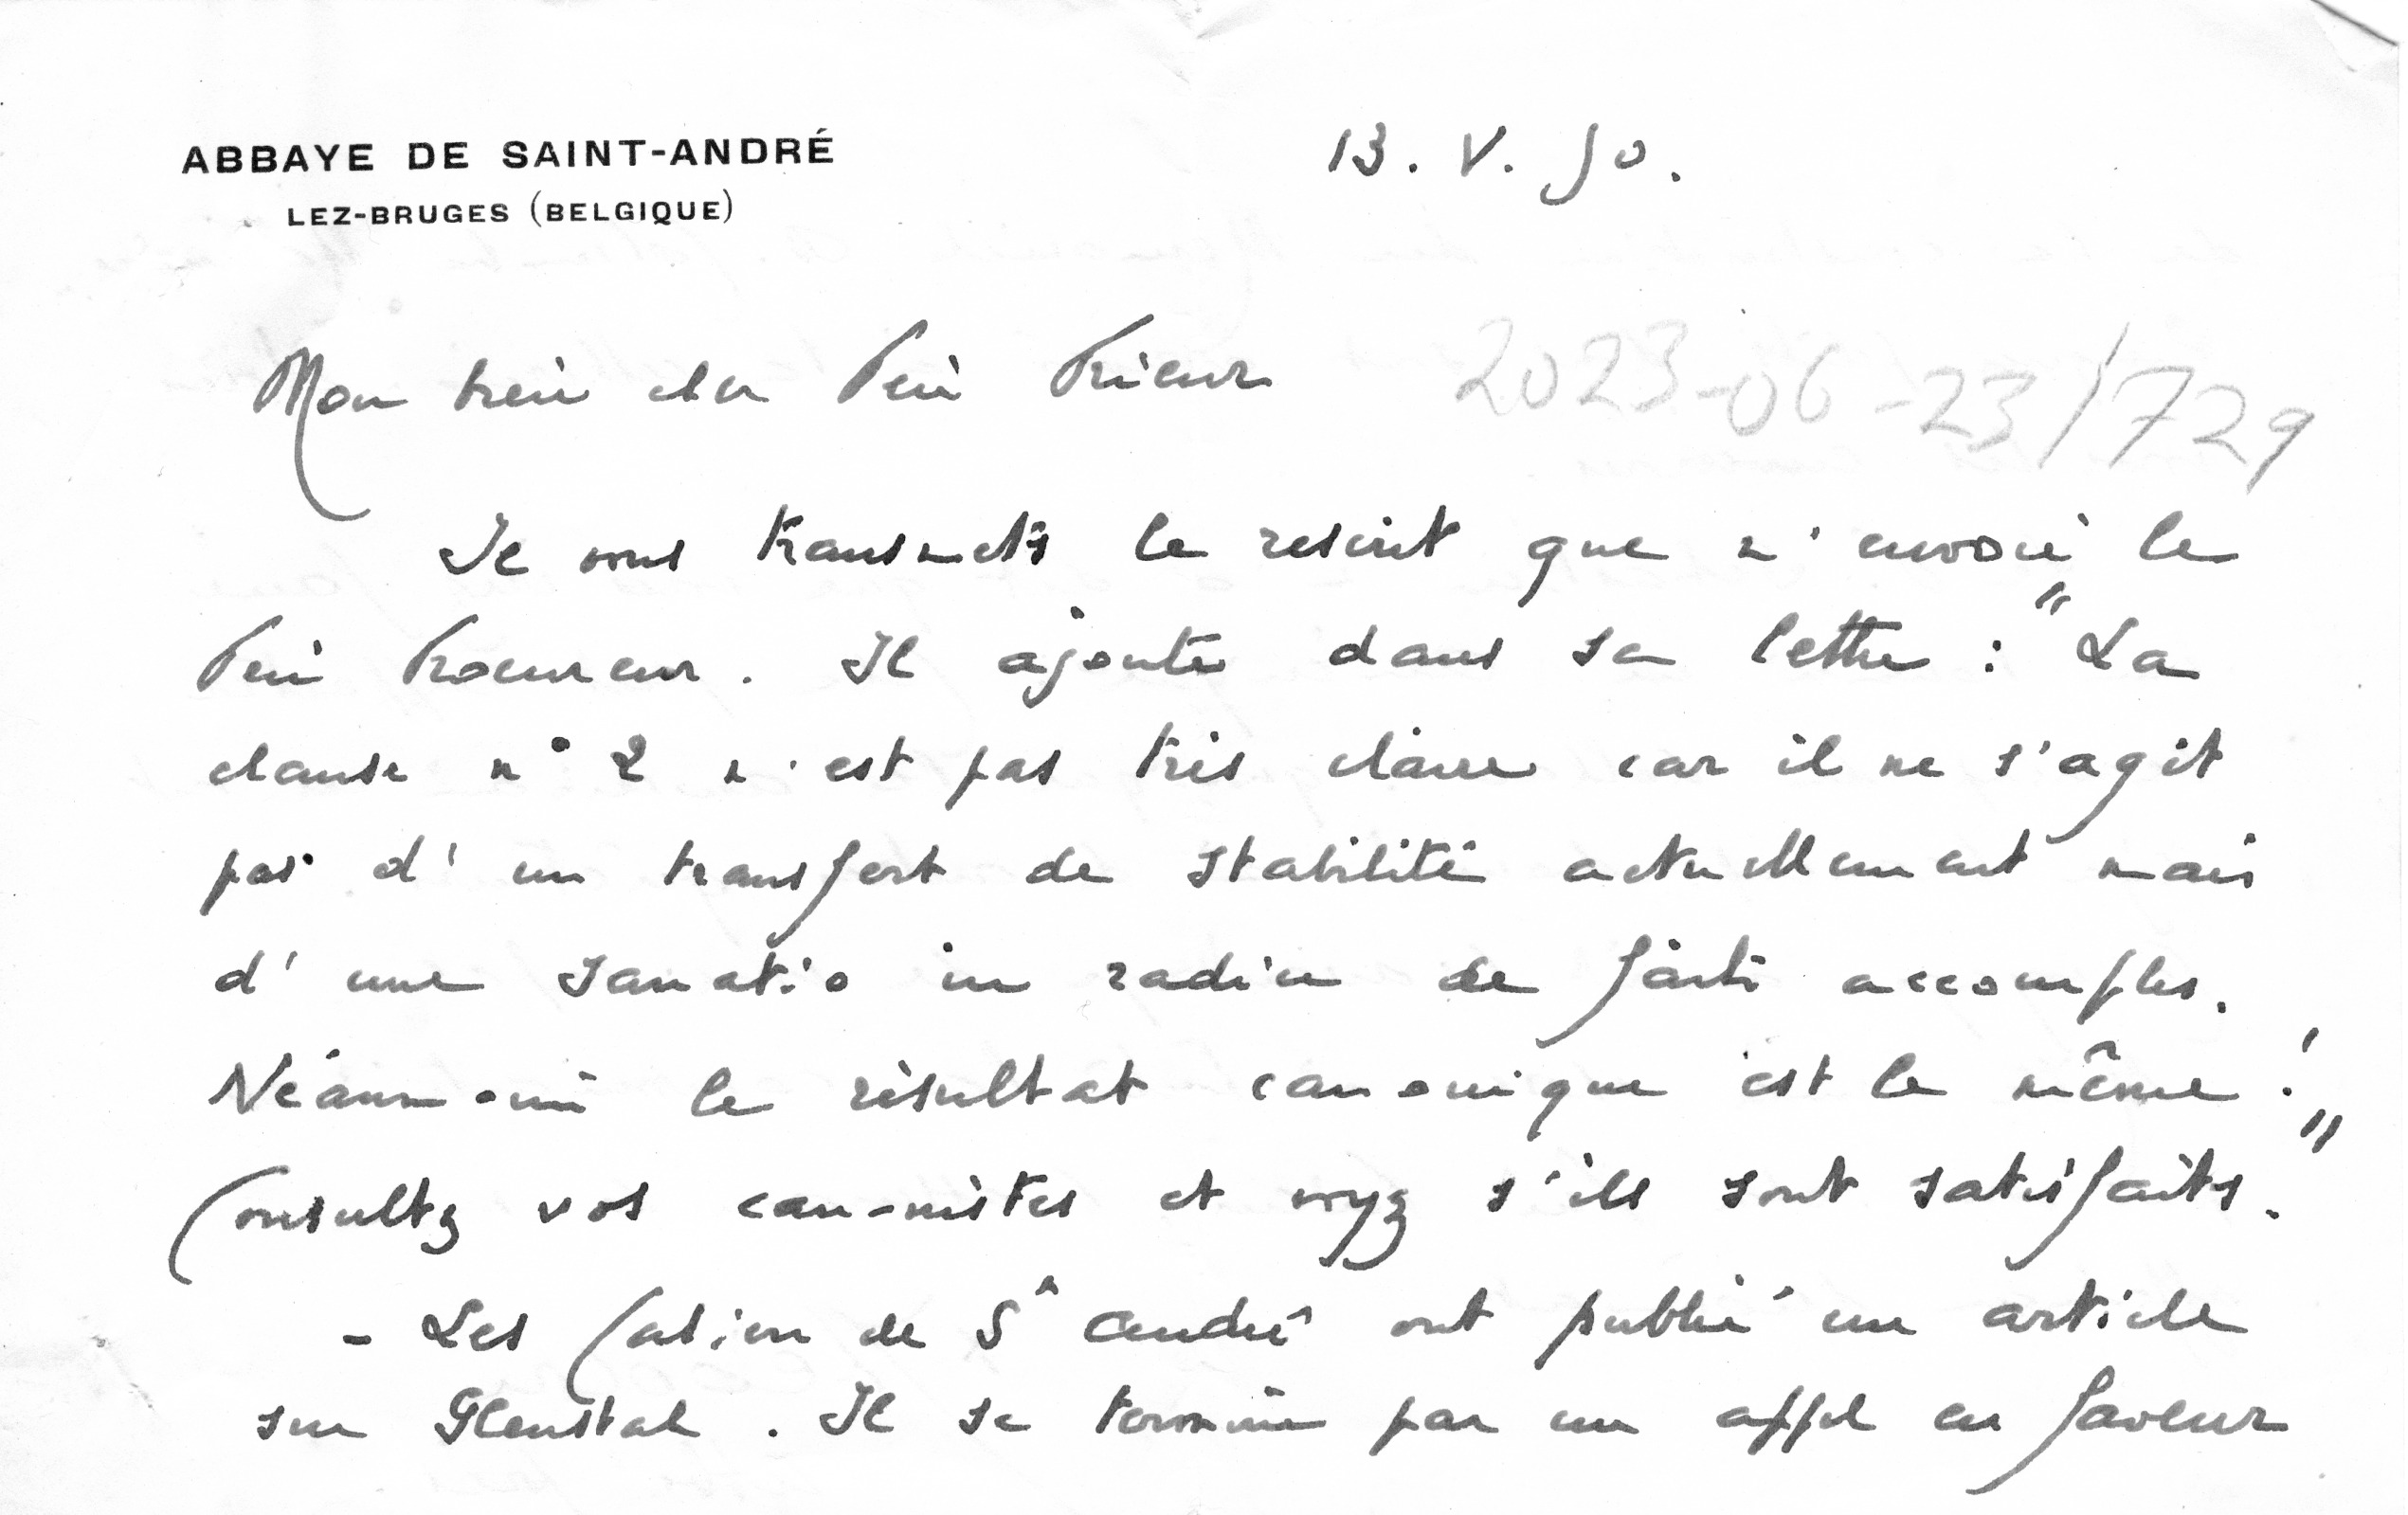 ABBAYE DE SAINT-ANDRÉ
LEZ-BRUGES (BELGIQUE)
13. V. 50.
Mon très cher Père Prieur
2023-06-23/729
Je vous transmets le rescrit que m'envoie le
Père Procureur. Il ajoute dans sa lettre : "La
clause n° 2 n'est pas très claire car il ne s'agit
pas d'un transfert de stabilité actuellement mais
d'une sanatio in radice de faits accomplis.
Néanmoins le résultat canonique est le même !"
Consultez vos canonistes et voyez s'ils sont satisfaits.
- Les Cahiers de St André ont publié un article
sur Glenstal. Il se termine par un appel en faveur